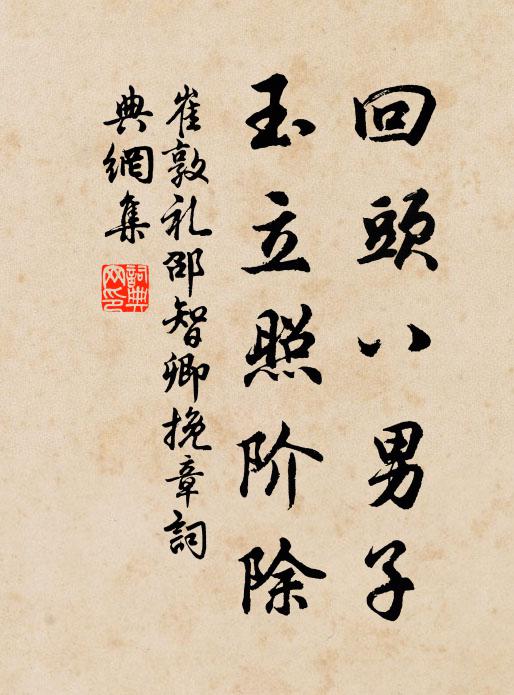 回頭八男子
玉立照阶除
崔敦礼邵智卿挽章詞
典網集
詞典网印